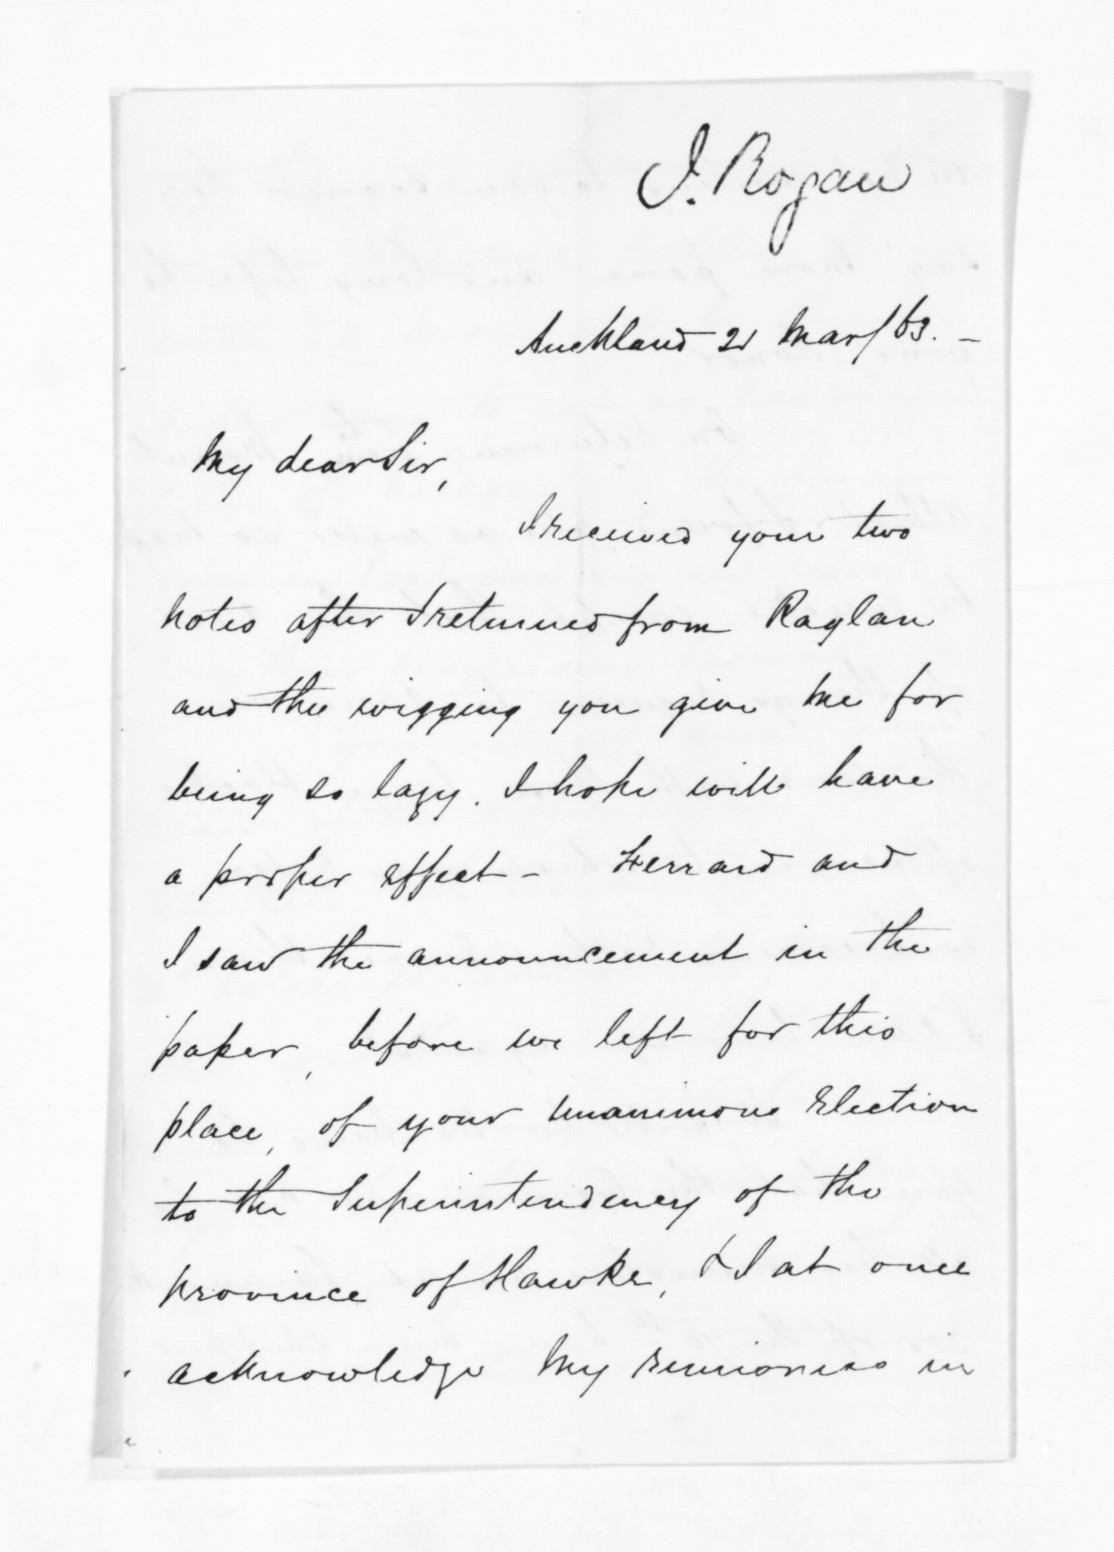 J. Rogan
Auckland 21 Mar/63. –
My dear Sir,
I received your two
notes after I returned from Raglan
and the wigging you give me for
being so lazy. I hope will have
a proper effect – Ferrard and
I saw the announcement in the
paper, before we left for this
place, of your unanimous Election
to the Superintendency of the
province of Hawke, & I at once
acknowledge my remissness in